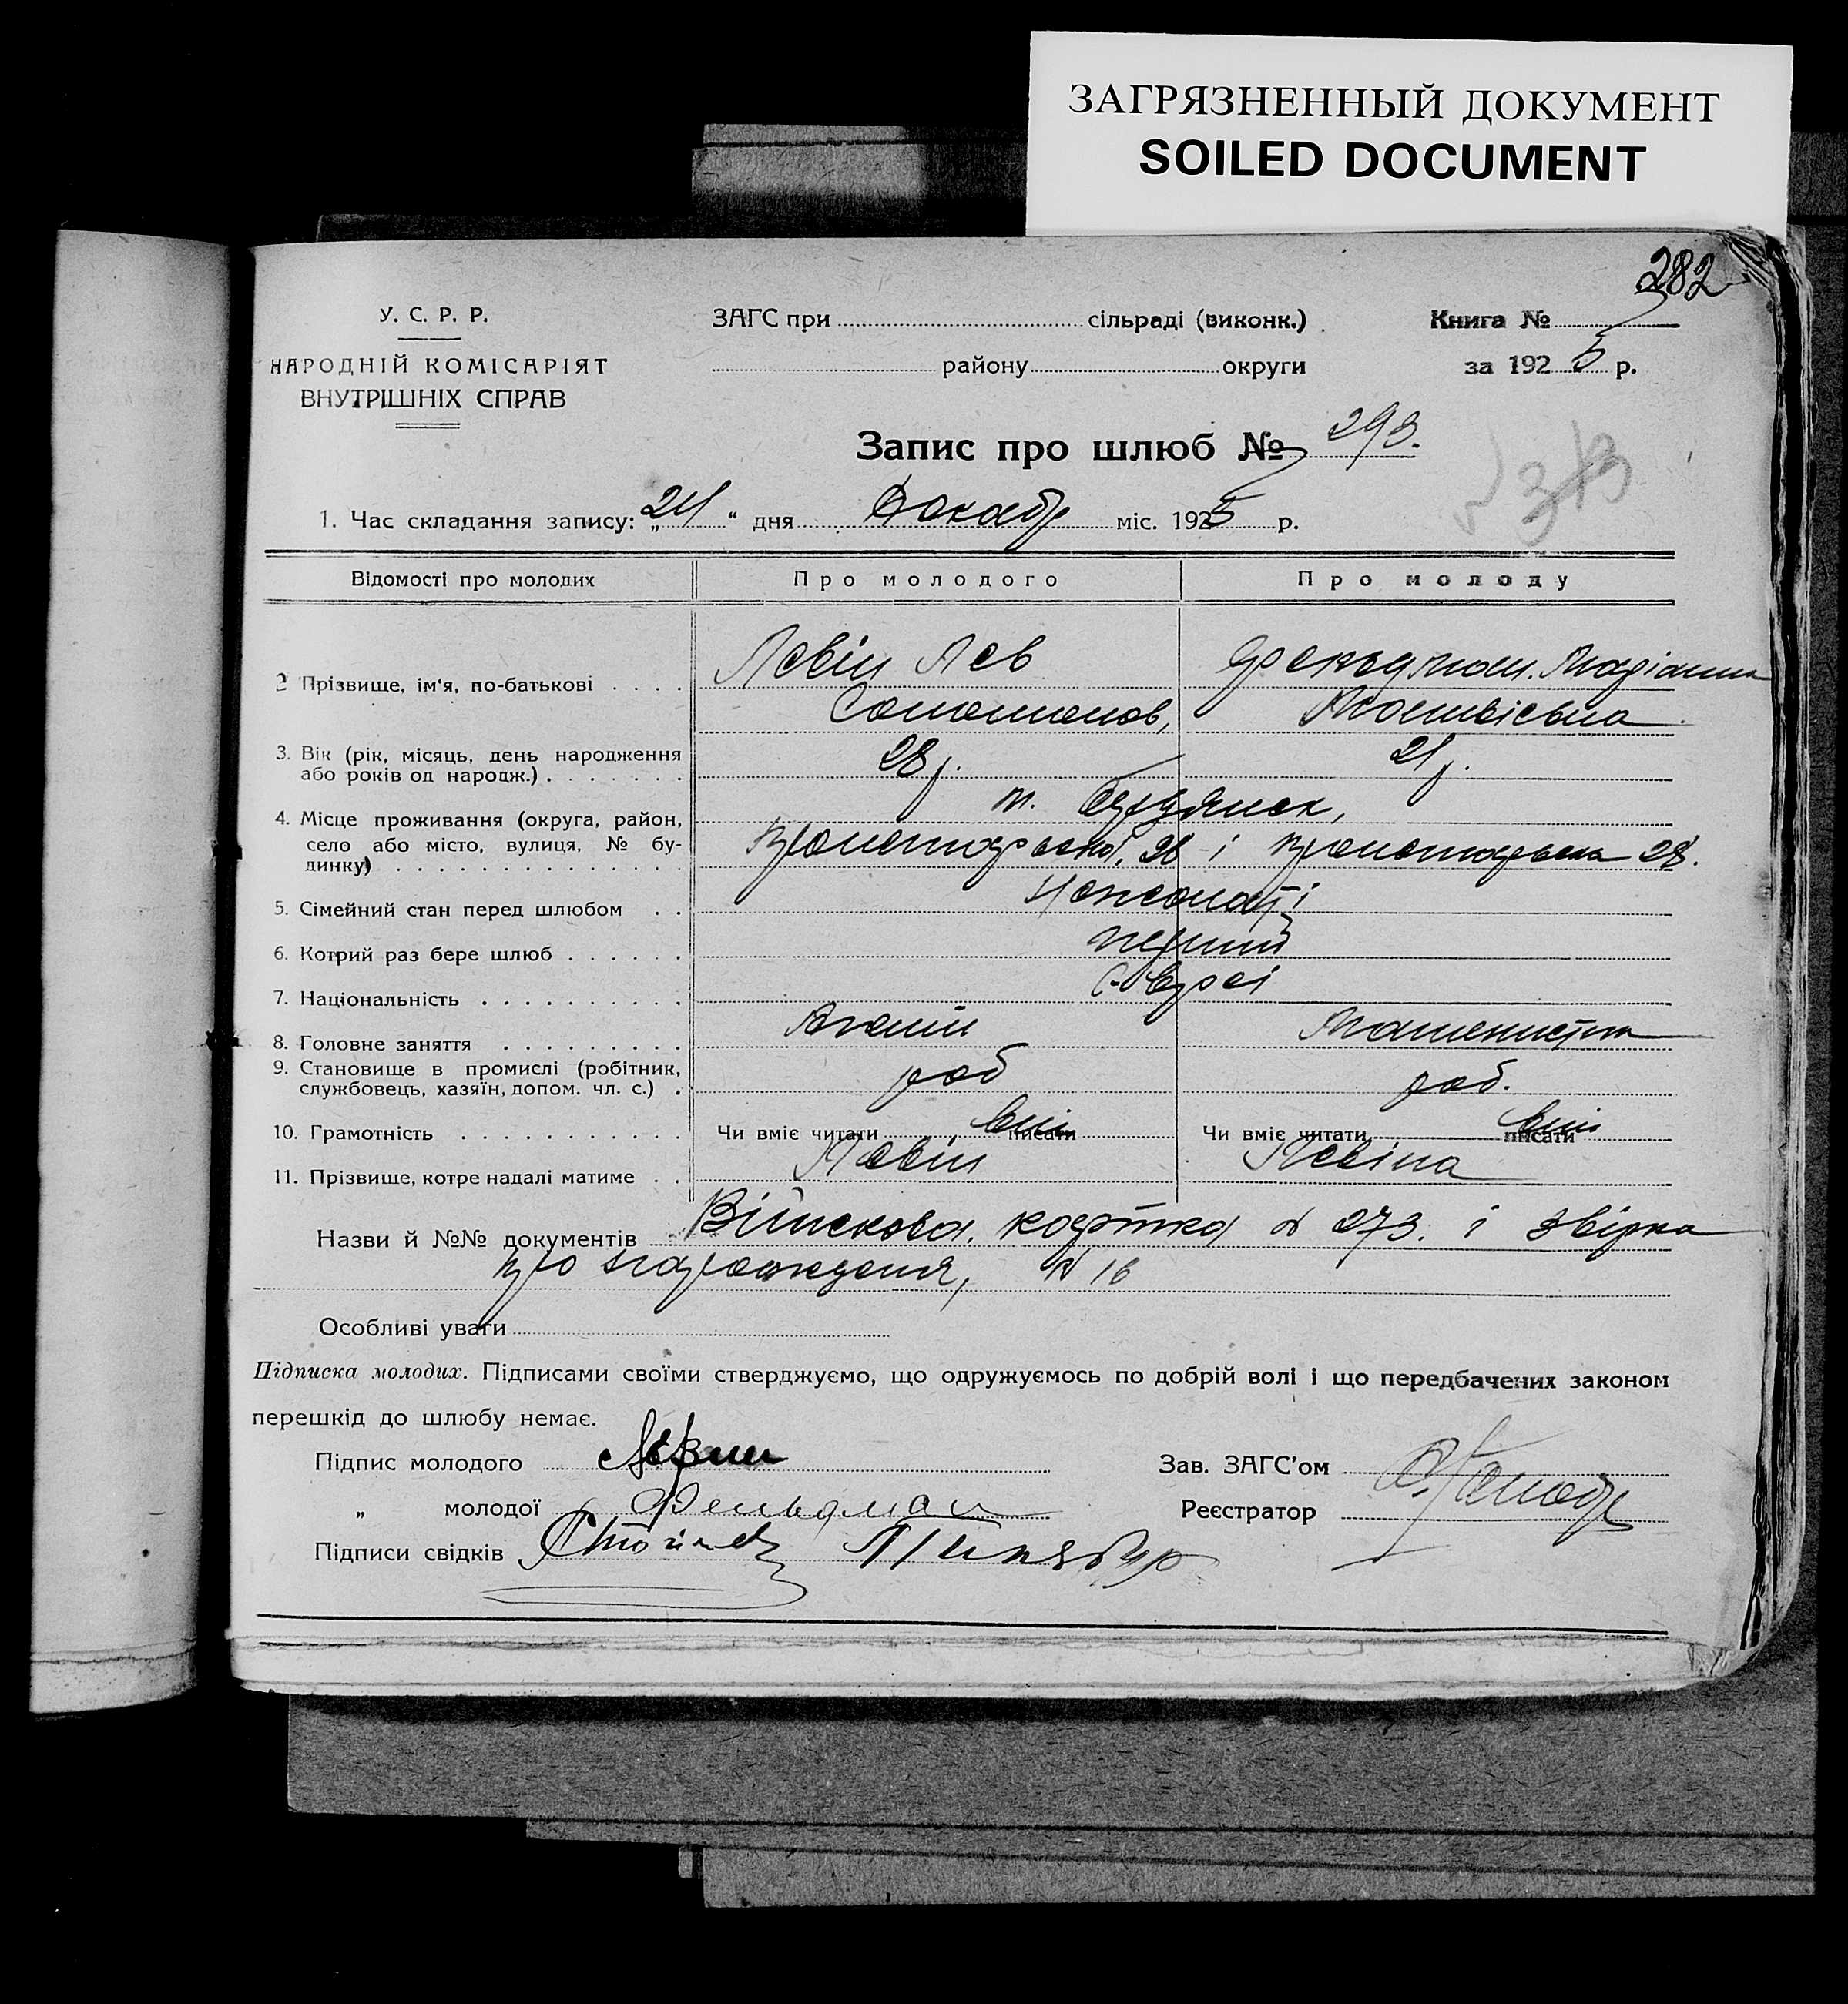 ЗАГРЯЗНЕННЫЙ ДОКУМЕНТ
SOILED DOCUMENT
282
У. С. Р. Р.
НАРОДНІЙ КОМІСАРІЯТ
ВНУТРІШНІХ СПРАВ
ЗАГС при сільраді (виконк.)
району округи
Книга №
за 1925 р.
Запис про шлюб № 293.
1. Час складання запису: „24“ дня Декабр міс. 1925 р.
Відомості про молодих Про молодого Про молоду
2 Прізвище, ім'я, по-батькові Левін Лев Фельдман. Маріанна
Соломонов,
3. Вік (рік, місяць, день народження 28 р. 21 р.
або років од народж.)
4. Місце проживання (округа, район, м.
село або місто, вулиця, № бу- Пролетарська, 28 і Пролетарська 28.
динку)
5. Сімейний стан перед шлюбом Нежонаті
6. Котрий раз бере шлюб перший
7. Національність Євреі
8. Головне заняття
9. Становище в промислі (робітник, роб роб.
службовець, хазяїн, допом. чл. с.)
10. Грамотність Чи вміє читати вміє писати Чи вміє читати вміє писати
11. Прізвище, котре надалі матиме Левін Левіна
Назви й №№ документів Війскова картка № 273. і Звірка
про народження, № 16
Особливі уваги
Підписка молодих. Підписами своїми стверджуємо, що одружуємось по добрій волі і що передбачених законом
перешкід до шлюбу немає.
Підпис молодого Левин Зав. ЗАГС'ом
„ молодої Фельдман Реєстратор
Підписи свідків